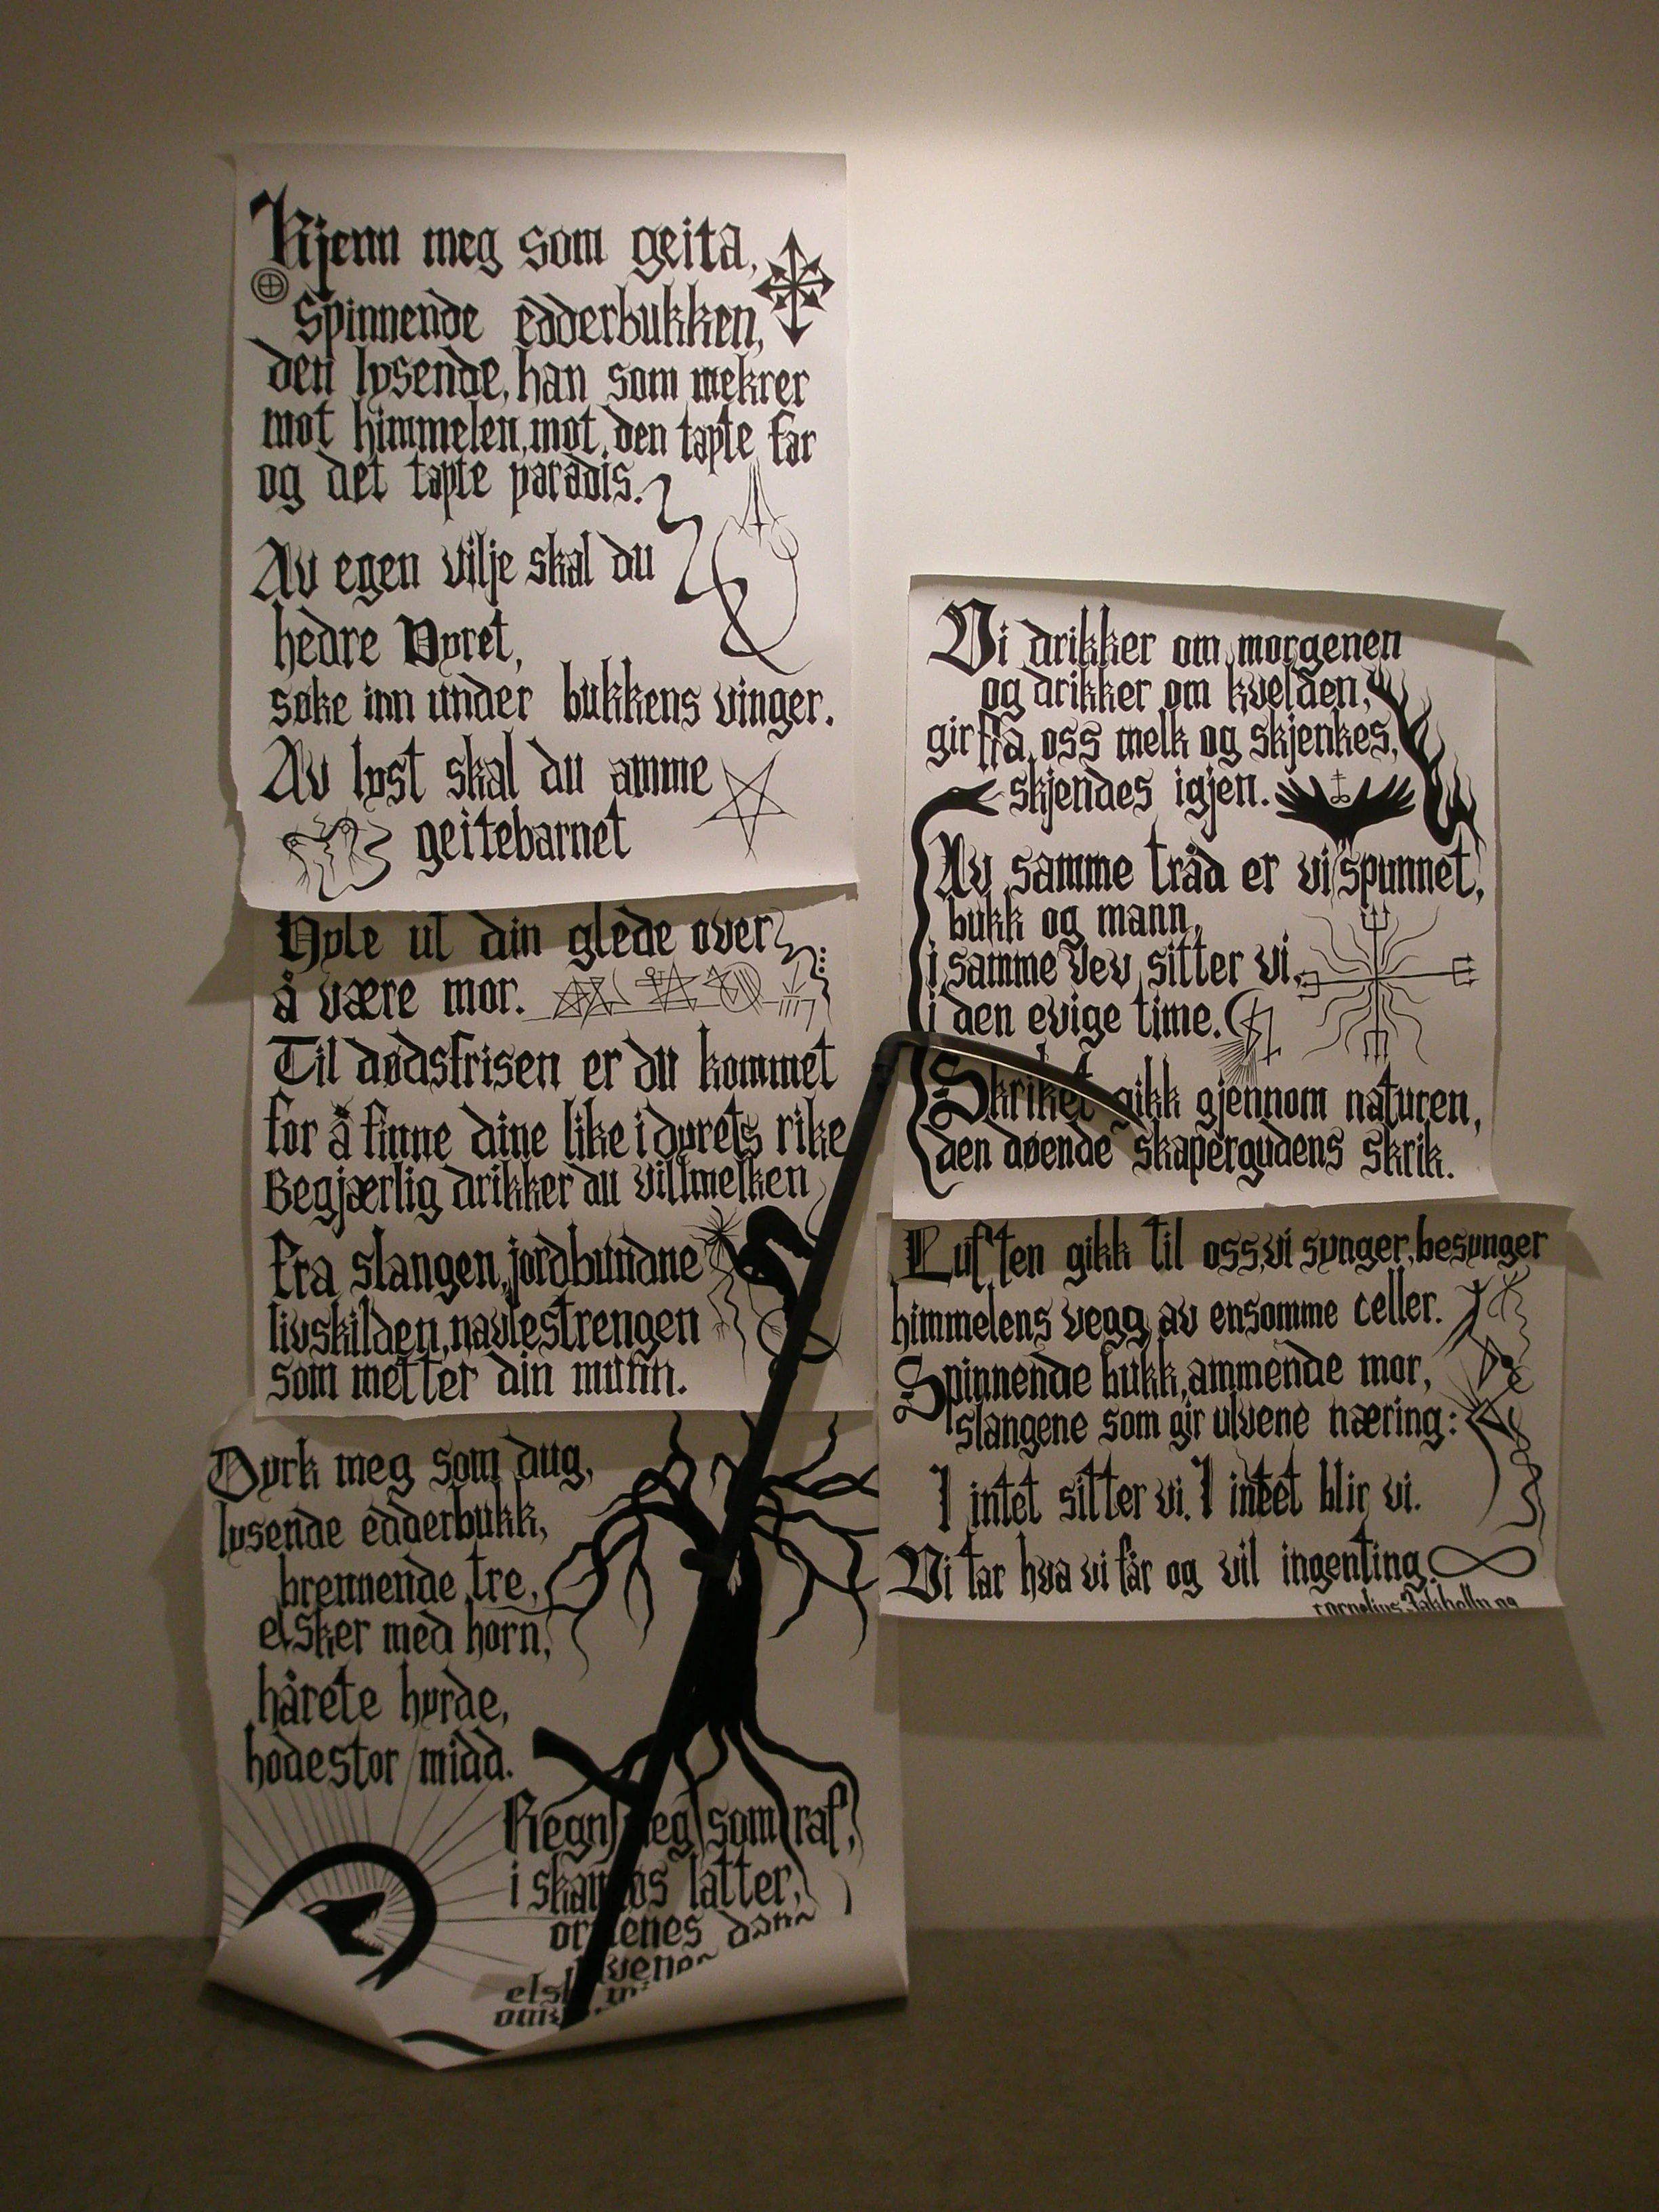 Kjenn meg som geita,
spinnende edderbukken,
den lysende, han som mekrer
mot himmelen, mot den tapte far
og det tapte paradis.
Av egen vilje skal du
hedre Dyret,
søke inn under bukkens vinger.
Av lyst skal du amme
geitebarnet
Hyle ut din glede over
å være mor.
Til dødsfrisen er du kommet
for å finne dine like i dyrets rike
Begjærlig drikker du villmelken
fra slangen, jordbundne
livskilden, navlestrengen
som metter din munn.
Dyrk meg som dug,
lysende edderbukk,
brennende tre,
elsker med horn,
hårete hyrde,
hodestor midd.
Regn meg som raf,
i latter,
Vi drikker om morgenen
og drikker om kvelden,
gir fra oss melk og skjenkes,
skjendes igjen.
Av samme tråd er vi spunnet,
bukk og mann,
i samme vev sitter vi,
i den evige time.
Skriket gikk gjennom naturen,
den døende skapergudens skrik.
Luften gikk til oss, vi synger, besynger
himmelens vegg av ensomme celler.
Spinnende bukk, ammende mor,
slangene som gir ulvene næring:
I intet sitter vi. I intet blir vi.
Vi tar hva vi får og vil ingenting
cornelius Jakhelln